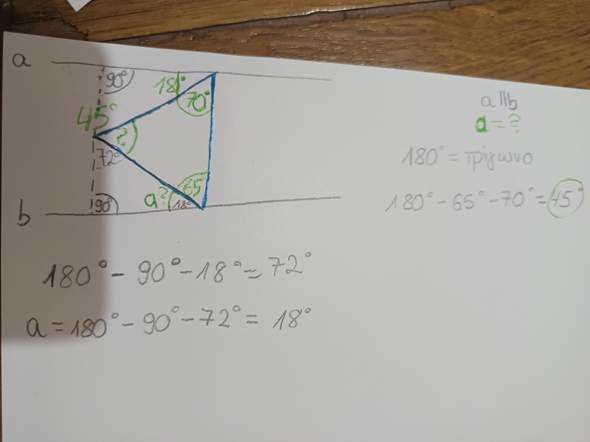 a
90°
18°
70°
45°
?
72°
a?
65°
18°
90°
b
a || b
a = ?
180° = τρίγωνο
180° - 65° - 70° = 45°
180° - 90° - 18° = 72°
a = 180° - 90° - 72° = 18°